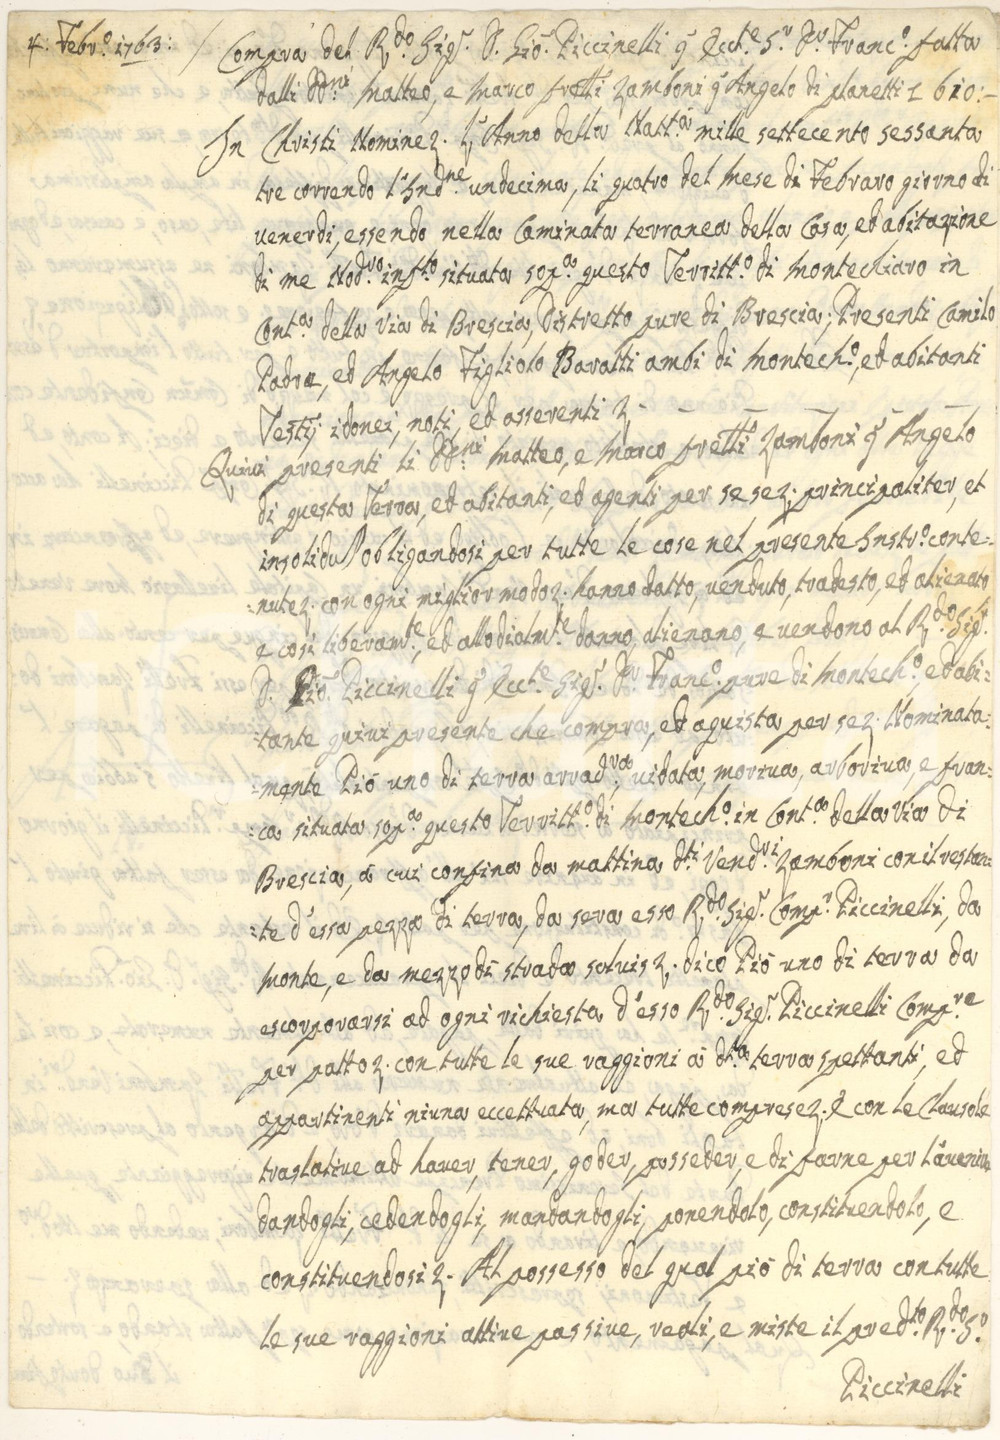 4: Febr.o 1763: / Compra del R.do Sig.r D. Gio: Piccinelli q Ecct.e S.r D.r Franc.o fatta
dalli DD.ni Matteo, e Marco fretti Zamboni q Angelo di planetti L 610:-
In Christi Nomine &. L'Anno della Natt.a mille settecento sessanta
tre correndo l'Ind.ne undecima, li quatro del Mese di Febraro giorno di
venerdi, essendo nella Caminata terranea della Casa, ed abitazione
di me Nod.ro inf.to situata sop.a questo Territt.o di Montechiaro in
Cont.a della Via di Brescia, Distretto pure di Brescia; Presenti Camilo
Padre, ed Angelo Figliolo Baratti ambi di Montech.o, ed abitanti
Testij idonei, noti, ed asserenti &.
Quivi presenti li DD.ni Matteo, e Marco fretti Zamboni q Angelo
di questa Terra, ed abitanti, ed agenti per se se &. principaliter, et
insolidu obligandosi per tutte le cose nel presente Instr.o conte=
=nute &. con ogni miglior modo &. hanno datto, venduto, tradesto, ed alienato
e cosi liberam.te, ed allodialm.te danno, alienano, e vendono al R.do Sig.r
D. Gio: Piccinelli q Ecct.e Sig.r D.r Franc.o pure di Montech.o, ed abi=
=tante quivi presente che compra, ed aquista per se &. Nominata=
=mente Piò uno di terra arrad.va, vidata, moriva, arboriva, e fran=
=ca situata sop.a questo Territt.o di Montech.o in Cont.a della Via di
Brescia, à cui confina da mattina d.ti Vend.ri Zamboni con il restan=
=te d'essa pezza di terra, da sera esso R.do Sig.r Comp.r Piccinelli, da
monte, e da mezzodi strada salvis &. dico Piò uno di terra da
escorporarsi ad ogni richiesta d'esso R.do Sig.r Piccinelli Comp.re
per patto &. con tutte le sue raggioni à d.ta terra spettanti, ed
appartinenti niuna eccettuata, ma tutte comprese &. E con le Clausole
traslative ad haver, tener, goder, posseder, e di farne per l'avenire
dandogli, cedendogli, mandandogli, ponendolo, constituendolo, e
constituendosi &. Al possesso del qual piò di terra con tutte
le sue raggioni attive passive, reali, e miste il pred.to R.do S.r
Piccinelli